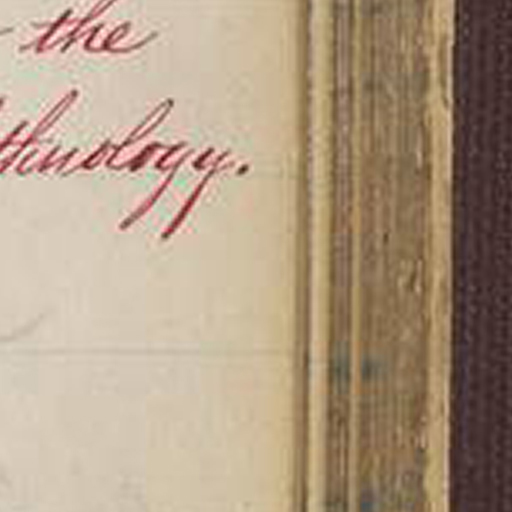 the
thnology.